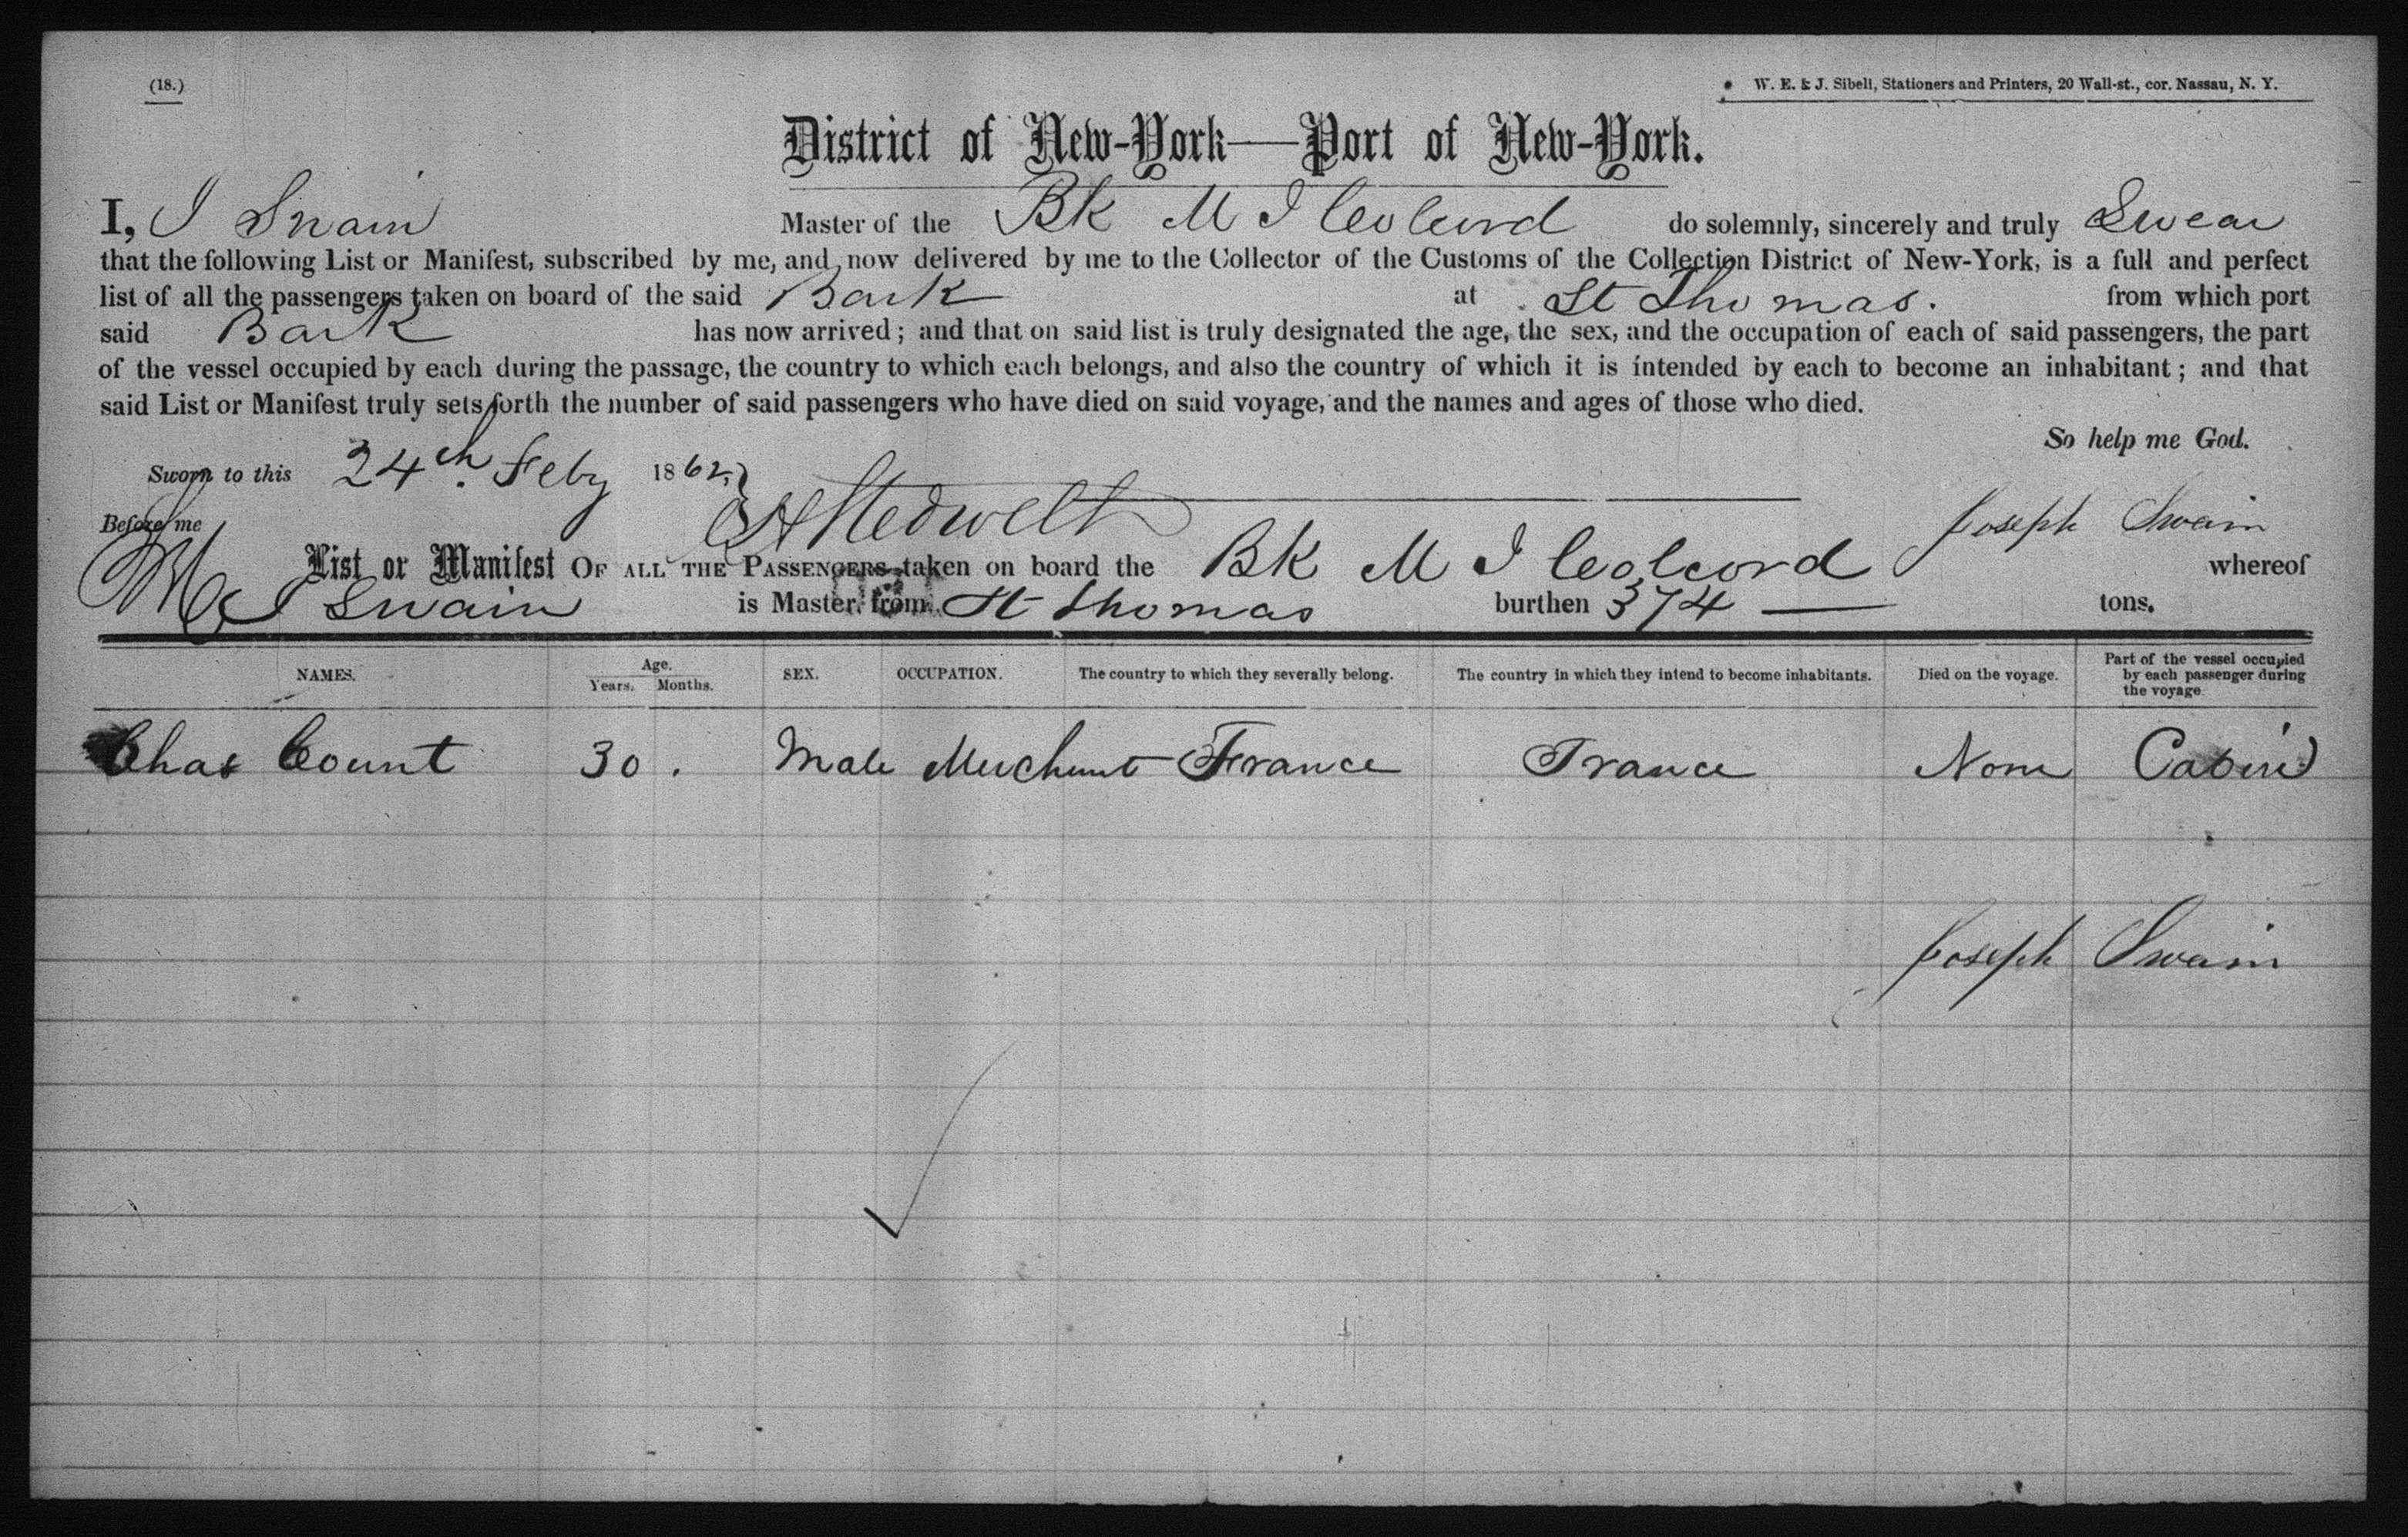 (18.)
W. E. & J. Sibell, Stationers and Printers, 20 Wall-st., cor. Nassau, N. Y.
District of New-York—Port of New-York.
I, J Swain Master of the Bk M J Colcord do solemnly, sincerely and truly Swear
that the following List or Manifest, subscribed by me, and now delivered by me to the Collector of the Customs of the Collection District of New-York, is a full and perfect
list of all the passengers taken on board of the said Bark at St Thomas. from which port
said Bark has now arrived; and that on said list is truly designated the age, the sex, and the occupation of each of said passengers, the part
of the vessel occupied by each during the passage, the country to which each belongs, and also the country of which it is intended by each to become an inhabitant; and that
said List or Manifest truly sets forth the number of said passengers who have died on said voyage, and the names and ages of those who died.
So help me God.
Sworn to this 24th. Feby 1862
Before me Joseph Swain
List or Manifest OF ALL THE PASSENGERS taken on board the Bk M J Colcord whereof
J Swain is Master, from St Thomas burthen 374 — tons.
NAMES. Age. Years. Months. SEX. OCCUPATION. The country to which they severally belong. The country in which they intend to become inhabitants. Died on the voyage. Part of the vessel occupied by each passenger during the voyage
Chas Count 30. Male Merchant France France None Cabin
Joseph Swain